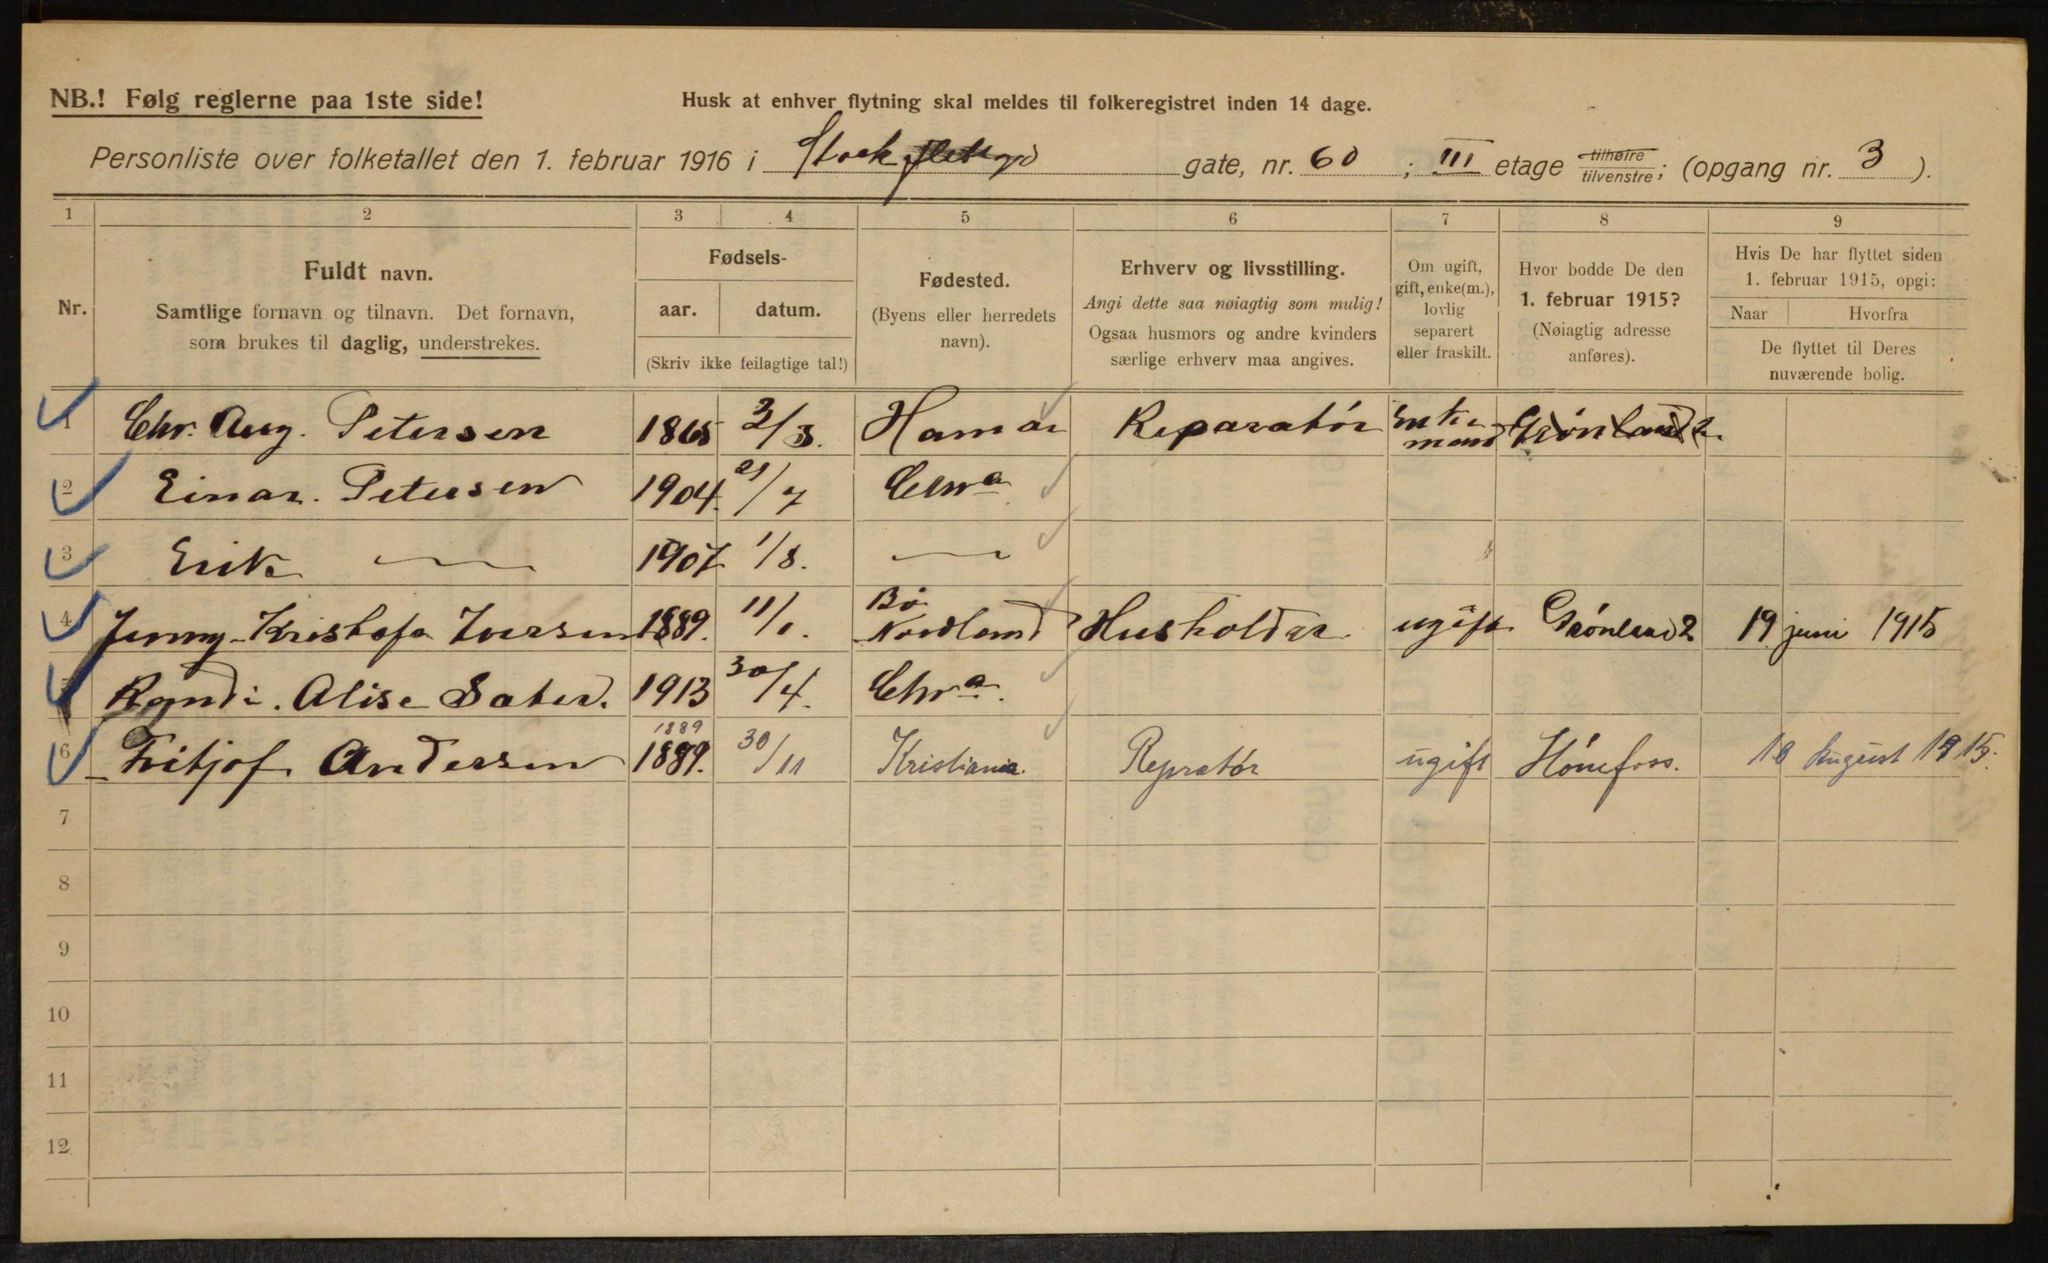 NB.! Følg reglerne paa 1ste side!
Husk at enhver flytning skal meldes til folkeregistret inden 14 dage.
Personliste over folketallet den 1. februar 1916 i gate, nr. 60 ; III etage tilhøire tilvenstre; (opgang nr. 3 ).
1 2 3 4 5 6 7 8 9
Nr.
Fuldt navn.
Samtlige fornavn og tilnavn. Det fornavn,
som brukes til daglig, understrekes.
Fødsels-
aar. datum.
(Skriv ikke feilagtige tal!)
Fødested.
(Byens eller herredets
navn).
Erhverv og livsstilling.
Angi dette saa nøiagtig som mulig!
Ogsaa husmors og andre kvinders
særlige erhverv maa angives.
Om ugift,
gift, enke(m.),
lovlig
separert
eller fraskilt.
Hvor bodde De den
1. februar 1915?
(Nøiagtig adresse
anføres).
Hvis De har flyttet siden
1. februar 1915, opgi:
Naar Hvorfra
De flyttet til Deres
nuværende bolig.
1 Chr. Aug. Petersen 1865 2/3. Hamar Reparatør Enkemand Grønland 2
2 Einar. Petersen 1904. 21/7 Chra
3 Erik — 1907 1/8. —
4 Jenny Kristofa Iversen 1889. 11/1. Bø Nordland Husholder ugift Grønland 2 19 juni 1915
5 Randi. Alise Sater. 1913 30/4. Chra.
1889
6 Fritjof Andersen 1889. 30/11 Kristiania. Repratør ugift Hønefoss. August 1915.
7
8
9
10
11
12